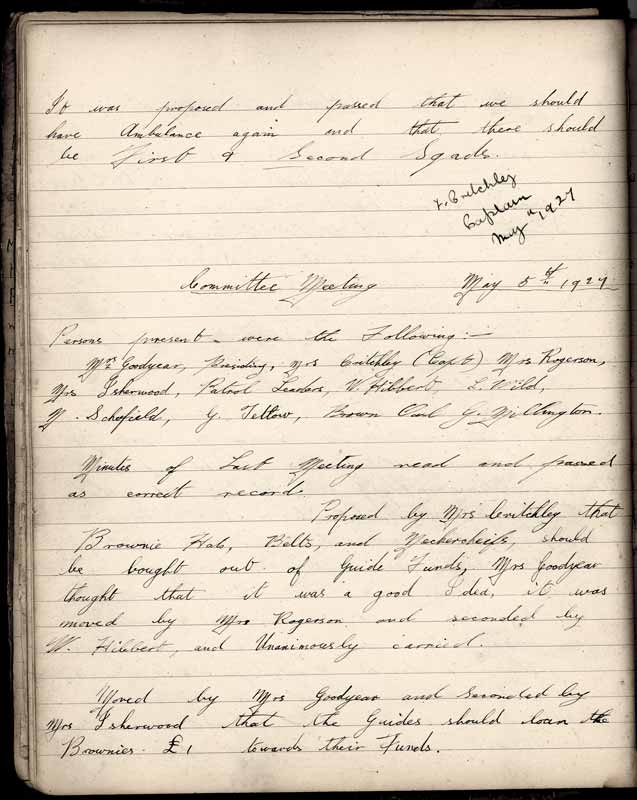 It was proposed and passed that we should
have Ambulance again and that there should
be First & Second Sqads.
Critchley
Captain
May 1927
Committee Meeting May 5th 1927
Persons present were the Following :-
Mrs Goodyear, Presiding, Mrs Critchley (Capt) Mrs Rogerson,
Mrs Isherwood, Patrol Leaders, W. Hibbert, L. Wild,
N. Schofield, G. Tetlow, Brown Owl G. Millington.
Minutes of Last Meeting read and passed
as correct record.
Proposed by Mrs Critchley that
Brownie Hats, Belts, and Neckercheifs, should
be bought out of Guide Funds, Mrs Goodyear
thought that it was a good Idea, it was
moved by Mrs Rogerson and seconded by
W. Hibbert, and Unanimously carried.
Moved by Mrs Goodyear and seconded by
Mrs Isherwood that the Guides should loan the
Brownies £1 towards their Funds.